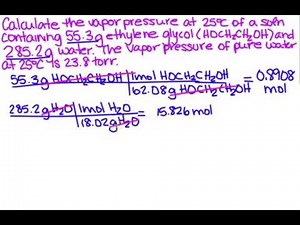 Calculate the vapor pressure at 25°C of a soln
containing 55.3g ethylene glycol (HOCH₂CH₂OH) and
285.2g water. The vapor pressure of pure water
at 25°C is 23.8 torr.
55.3g HOCH₂CH₂OH | 1mol HOCH₂CH₂OH = 0.8908
62.08g HOCH₂CH₂OH mol
285.2g H₂O | 1mol H₂O = 15.826 mol
18.02g H₂O